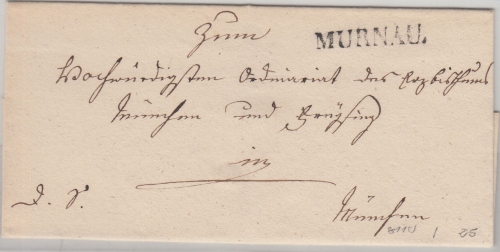 Zum
MURNAU.
Hochwürdigsten Ordinariat des Erzbisthums
München und Freysing
in
D. S.
München